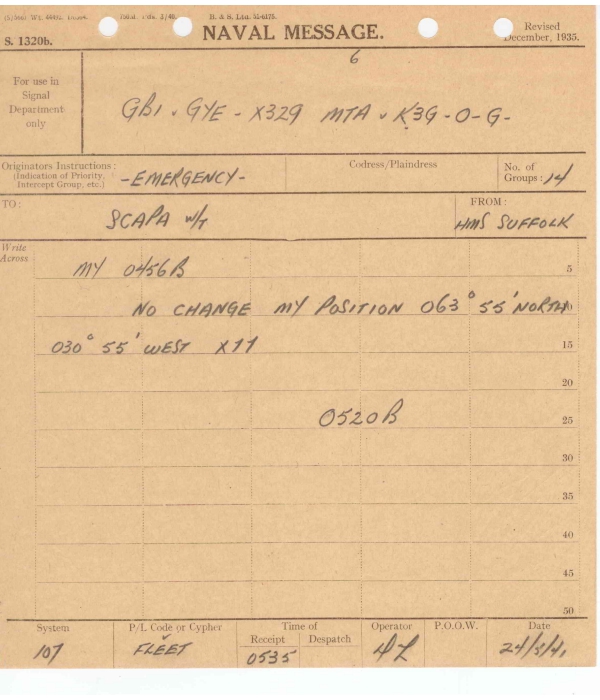 S. 1320b.
NAVAL MESSAGE.
Revised
December, 1935.
6
For use in
Signal
Department
only
GB1 v GYE - X329 MTA v K3G - O - G -
Originators Instructions:
(Indication of Priority,
Intercept Group, etc.)
-EMERGENCY-
Codress/Plaindress
No. of
Groups: 14
TO:
SCAPA W/T
FROM:
HMS SUFFOLK
Write
Across
MY 0456B
5
NO CHANGE MY POSITION 063° 55' NORTH
10
030° 55' WEST X11
15
20
0520B
25
30
35
40
45
50
System
P/L Code or Cypher
Time of
Receipt
Despatch
Operator
P.O.O.W.
Date
107
FLEET
0535
24/5/41